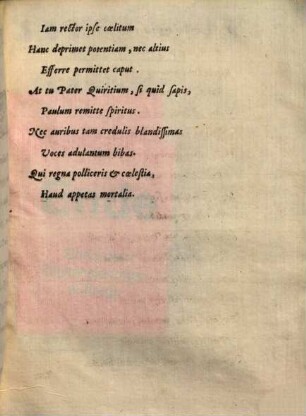 Iam rector ipse cœlitum
Hanc deprimet potentiam, nec altius
Efferre permittet caput.
At tu Pater Quiritium, si quid sapis,
Paulum remitte spiritus.
Nec auribus tam credulis blandissimas
Voces adulantum bibas.
Qui regna polliceris & cœlestia,
Haud appetas mortalia.